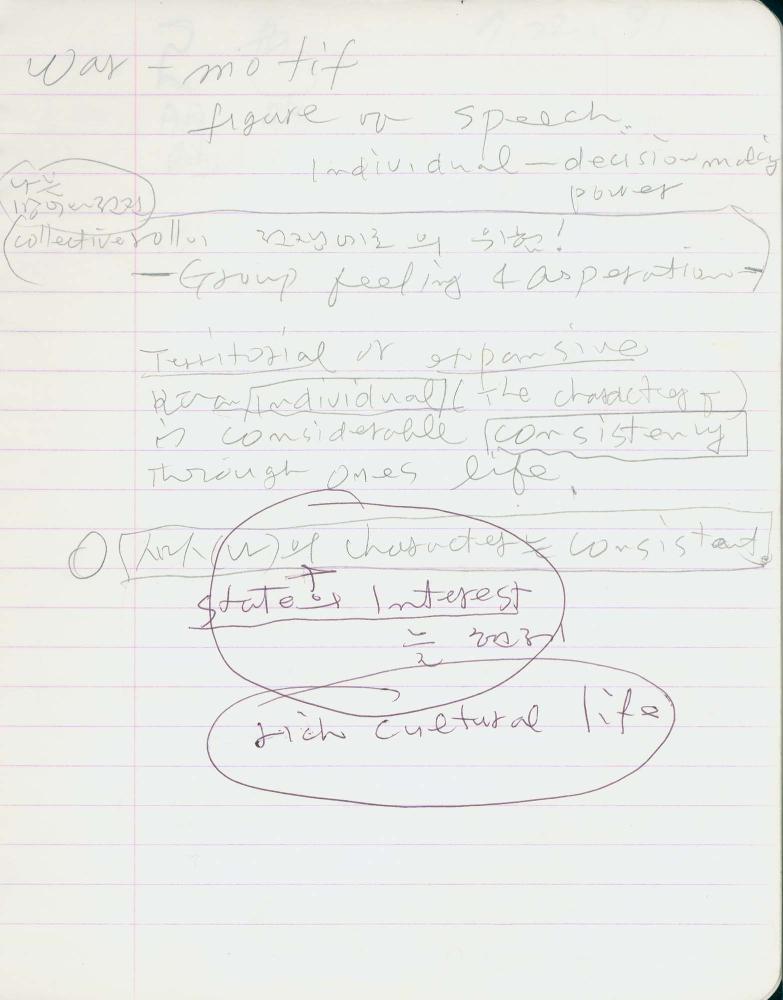 war - motif
figure or speech
Individual - decision making
power
collective
의 위험!
- Group feeling & asperation -
Territorial or expansive
individual (the character of)
is considerable consistency
through ones life.
의 character는 consistent.
state of Interest
을
rich cultural life